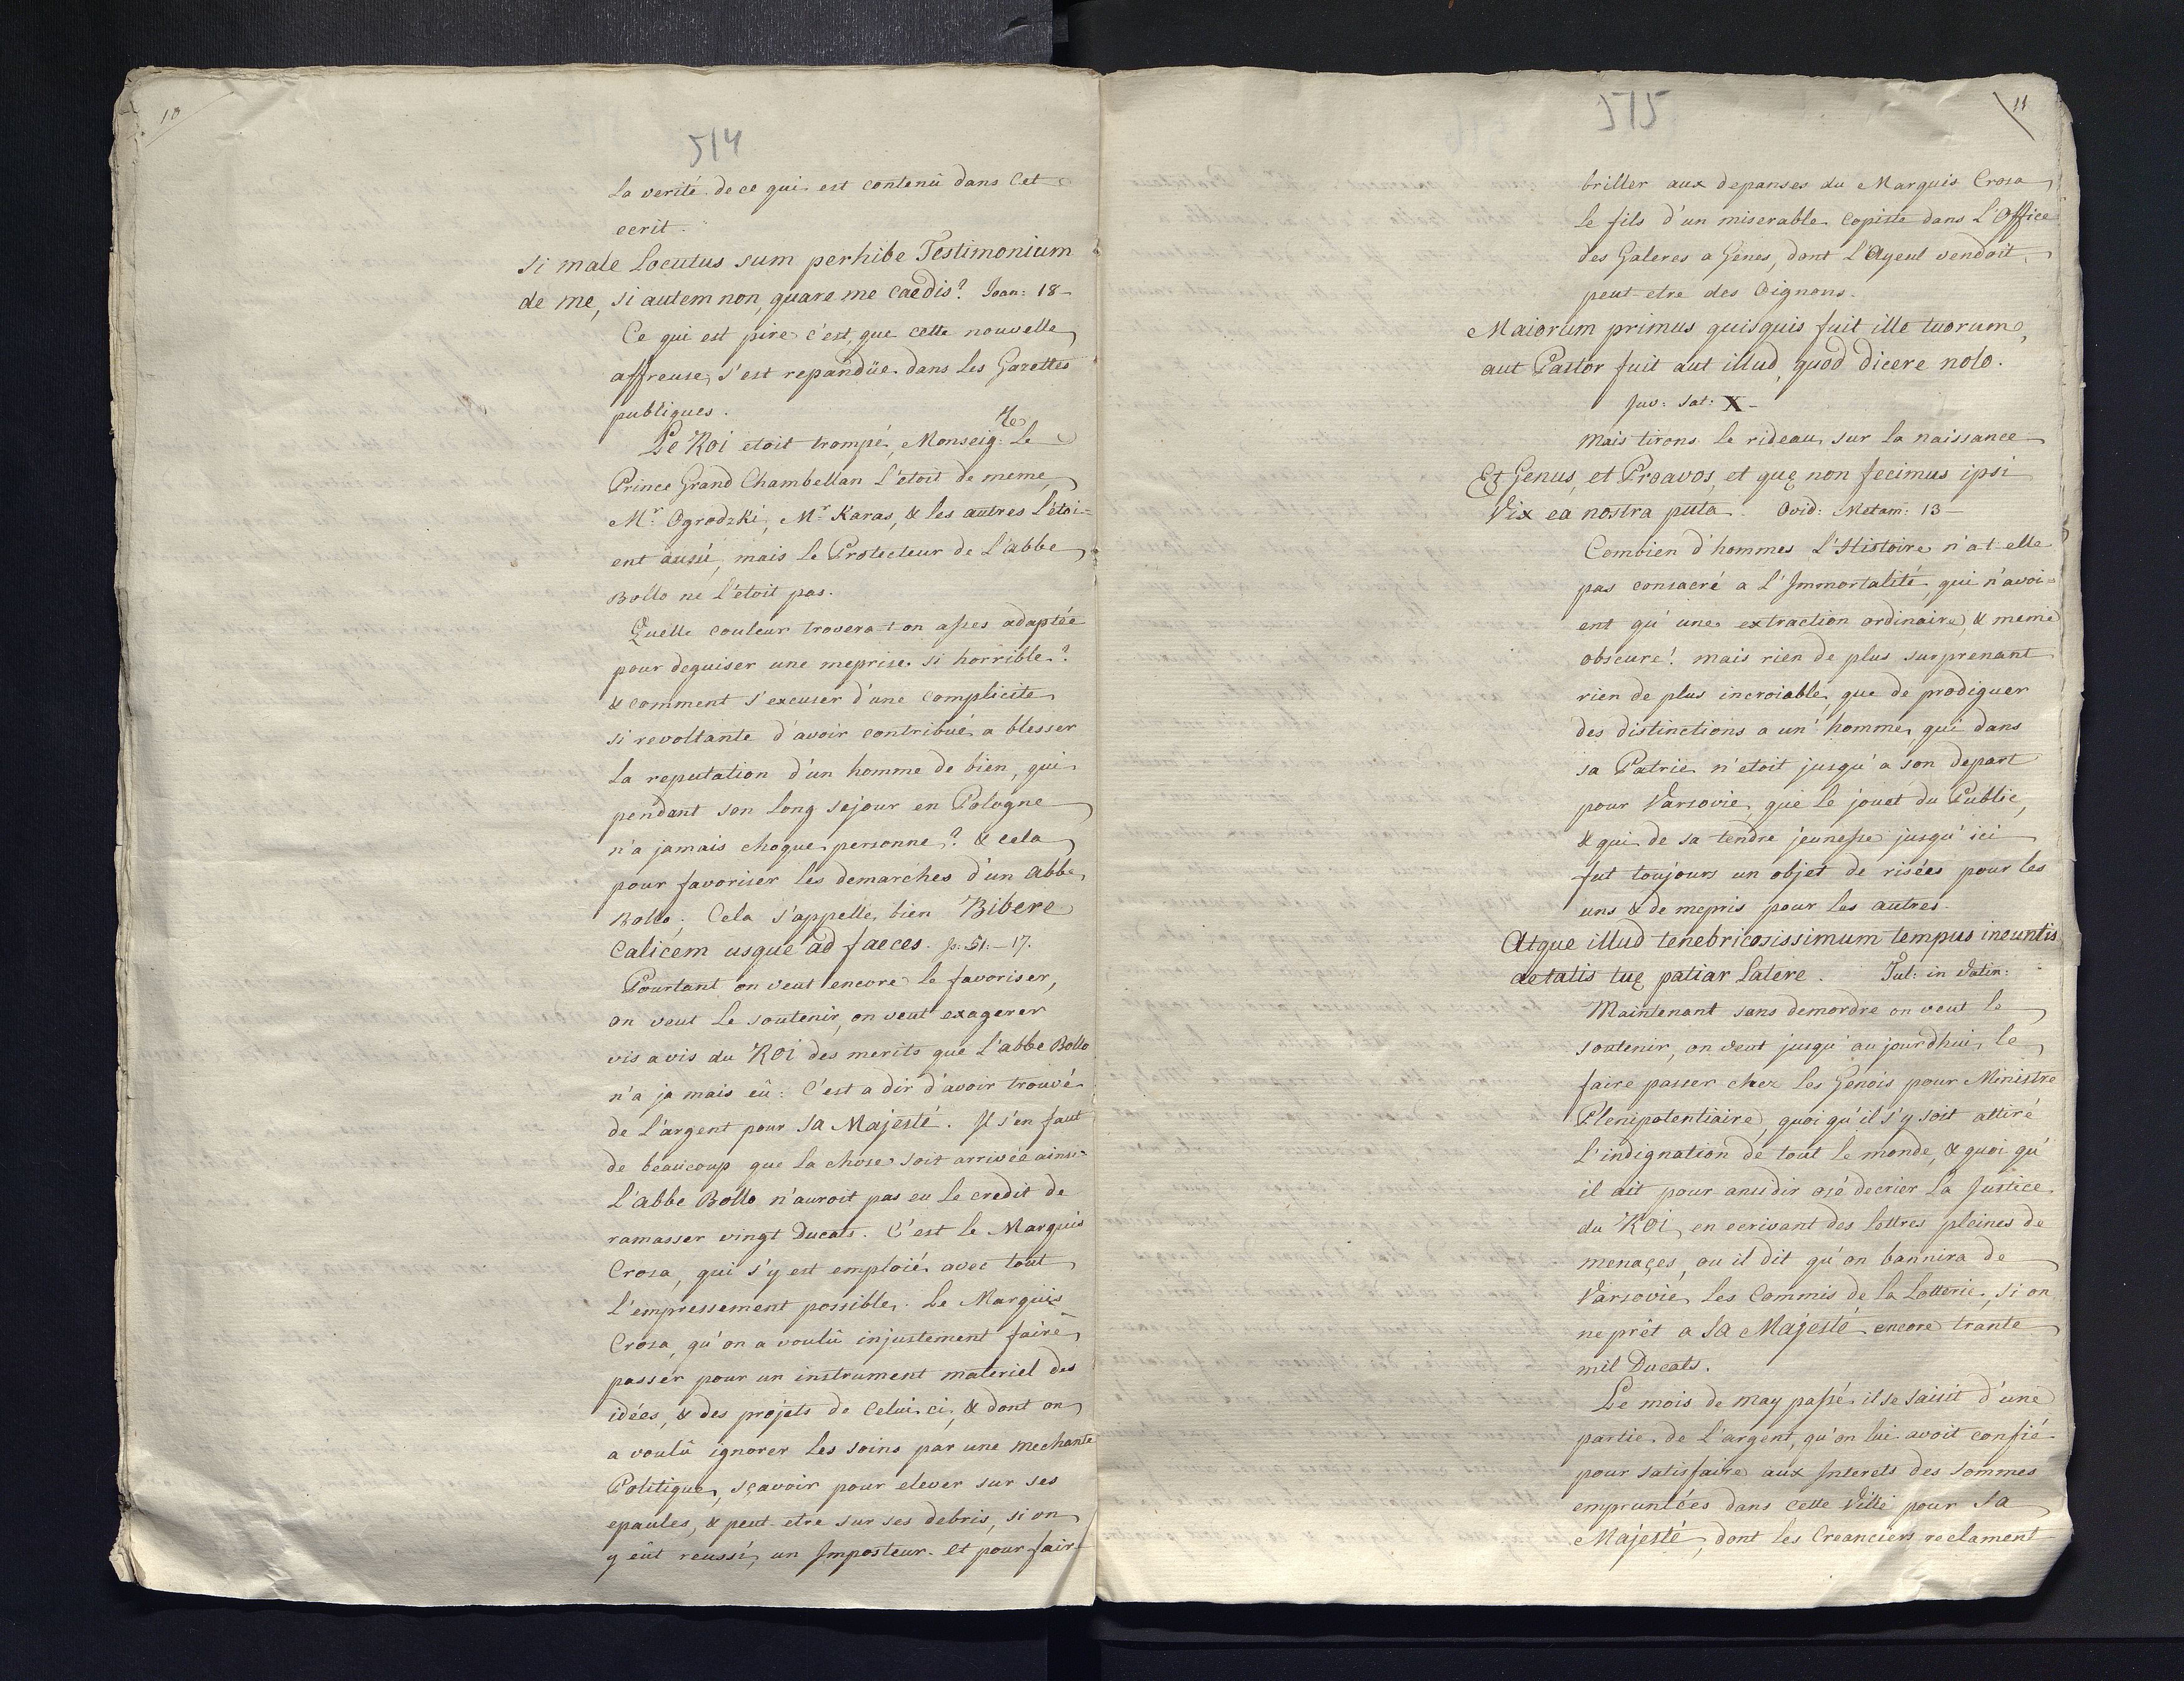 10
514
la verité de ce qui est contenû dans Cet
ecrit.
Si male Locutus sum perhibe Testimonium
de me, si autem non, quare me caedis? Joan: 18-
Ce qui est pire c'est, que cette nouvelle
affreuse, s'est repandüe dans les Gazettes
publiques.
Le Roi etoit trompé, Monseig:re Le
Prince Grand Chambellan l'étoit de meme,
Mr. Ogrodzki, Mr. Karas, & les autres l'étoi=
ent aussi, mais le Protecteur de L'abbe
Bollo ne l'étoit pas.
Quelle couleur trovera-t-on asses adaptée
pour deguiser une meprise si horrible?
& comment s'excuser d'une complicite
si revoltante d'avoir contribué a blesser
la reputation d'un homme de bien, qui
pendant son long sejour en Pologne
n'a jamais choque personne? & cela
pour favoriser les demarches d'un abbe
Bollo. Cela s'appelle bien Bibere
Calicem usque ad faeces. p. 51.-17.
Pourtant on veut encore le favoriser,
on veut le soutenir, on veut exagerer
vis avis du ROI des merits que L'abbe Bollo
n'a ja mais eû: C'est a dir d'avoir trouvé
de L'argent pour SA Majesté. Il s'en faut
de beaucoup que la chose soit arrivée ainsi.
L'abbe Bollo n'auroit pas eu le credit de
ramasser vingt Ducats. C'est le Marquis
Crosa, qui s'y est emploié avec tout
l'empressement possible. Le Marquis
Crosa, qu'on a voulû injustement faire
passer pour un instrument materiel des
idées, & des projets de Celui-ci, & dont on
a voulû ignorer les soins par une mechante
Politique, sçavoir pour elever sur ses
epaules, & peut-etre sur ses debris, si on
y eût reussi, un Imposteur. Et pour fair
11
515
briller aux depanses du Marquis Crosa
le fils d'un miserable Copiste dans L'Office
des Galeres a Gênes, dont L'Ayeul vendoit
peut-etre des Oignons.
Maiorum primus quisquis fuit ille tuorum,
aut Pastor fuit aut illud, quod dicere nolo.
Juv: Sat: X-
Mais tirons le rideau sur la naissance
Et Genus, et Proavos, et quę non fecimus ipsi
Vix ea nostra puta. Ovid: Metam: 13-
Combien d'hommes L'Histoire n'a t elle
pas consacré a L'Immortalité, qui n'avoi=
ent qu'une extraction ordinaire, & meme
obscure! mais rien de plus surprenant
rien de plus incroiable, que de prodiguer
des distinctions a un' homme, qui dans
sa Patrie n'etoit jusqu'a son depart
pour Varsovie, que le jouet du Public,
& qui de sa tendre jeunesse jusqu'ici
fut toujours un objet de risées pour les
uns & de mepris pour les autres.
Atque illud tenebricosissimum tempus ineuntis
aetatis tuę patiar latere. Tul: in Vatin:
Maintenant sans demordre on veut le
soutenir, on veut jusqu'au jourdhui, le
faire passer chez les Genois pour Ministre
Plenipotentiaire, quoi qu'il s'y soit attiré
l'indignation de tout le monde, & quoi qu'
il ait pour ansi dir osé decrier la Justice
du ROI, en ecrivant des lettres pleines de
menaçes, ou il dit qu'on bannira de
Varsovie les Commis de la Lotterie, si on
ne prêt a SA Majesté encore trante
mil Ducats.
Le mois de may passé il se saisit d'une
partie de L'argent, qu'on lui avoit confié
pour satisfaire aux Interets des sommes
empruntées dans cette Ville pour SA
Majesté, dont les Creanciers reclament